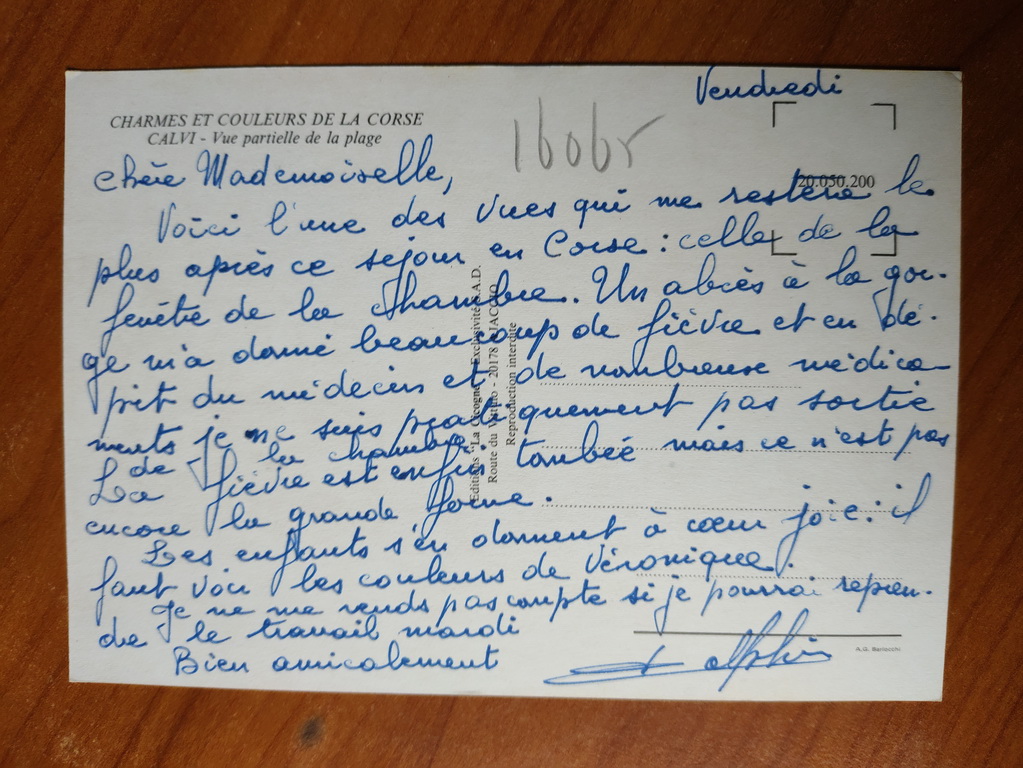 Vendredi
CHARMES ET COULEURS DE LA CORSE
CALVI - Vue partielle de la plage
16065
20.050.200
Chère Mademoiselle,
Voici l'une des vues qui me restera le
plus après ce séjour en Corse : celle de la
fenêtre de la chambre. Un abcès à la gor-
ge m'a donné beaucoup de fièvre et en dé-
pit du médecin et de nombreux médica-
ments je ne suis pratiquement pas sortie
de la chambre.
La fièvre est enfin tombée mais ce n'est pas
encore la grande forme.
Les enfants s'en donnent à cœur joie : il
faut voir les couleurs de Véronique.
Je ne me rends pas compte si je pourrai repren-
dre le travail mardi
Bien amicalement
Editions "La Cigogne" - Exclusivité A.D.
Route du - 20178 AJACCIO
Reproduction interdite
A.G.